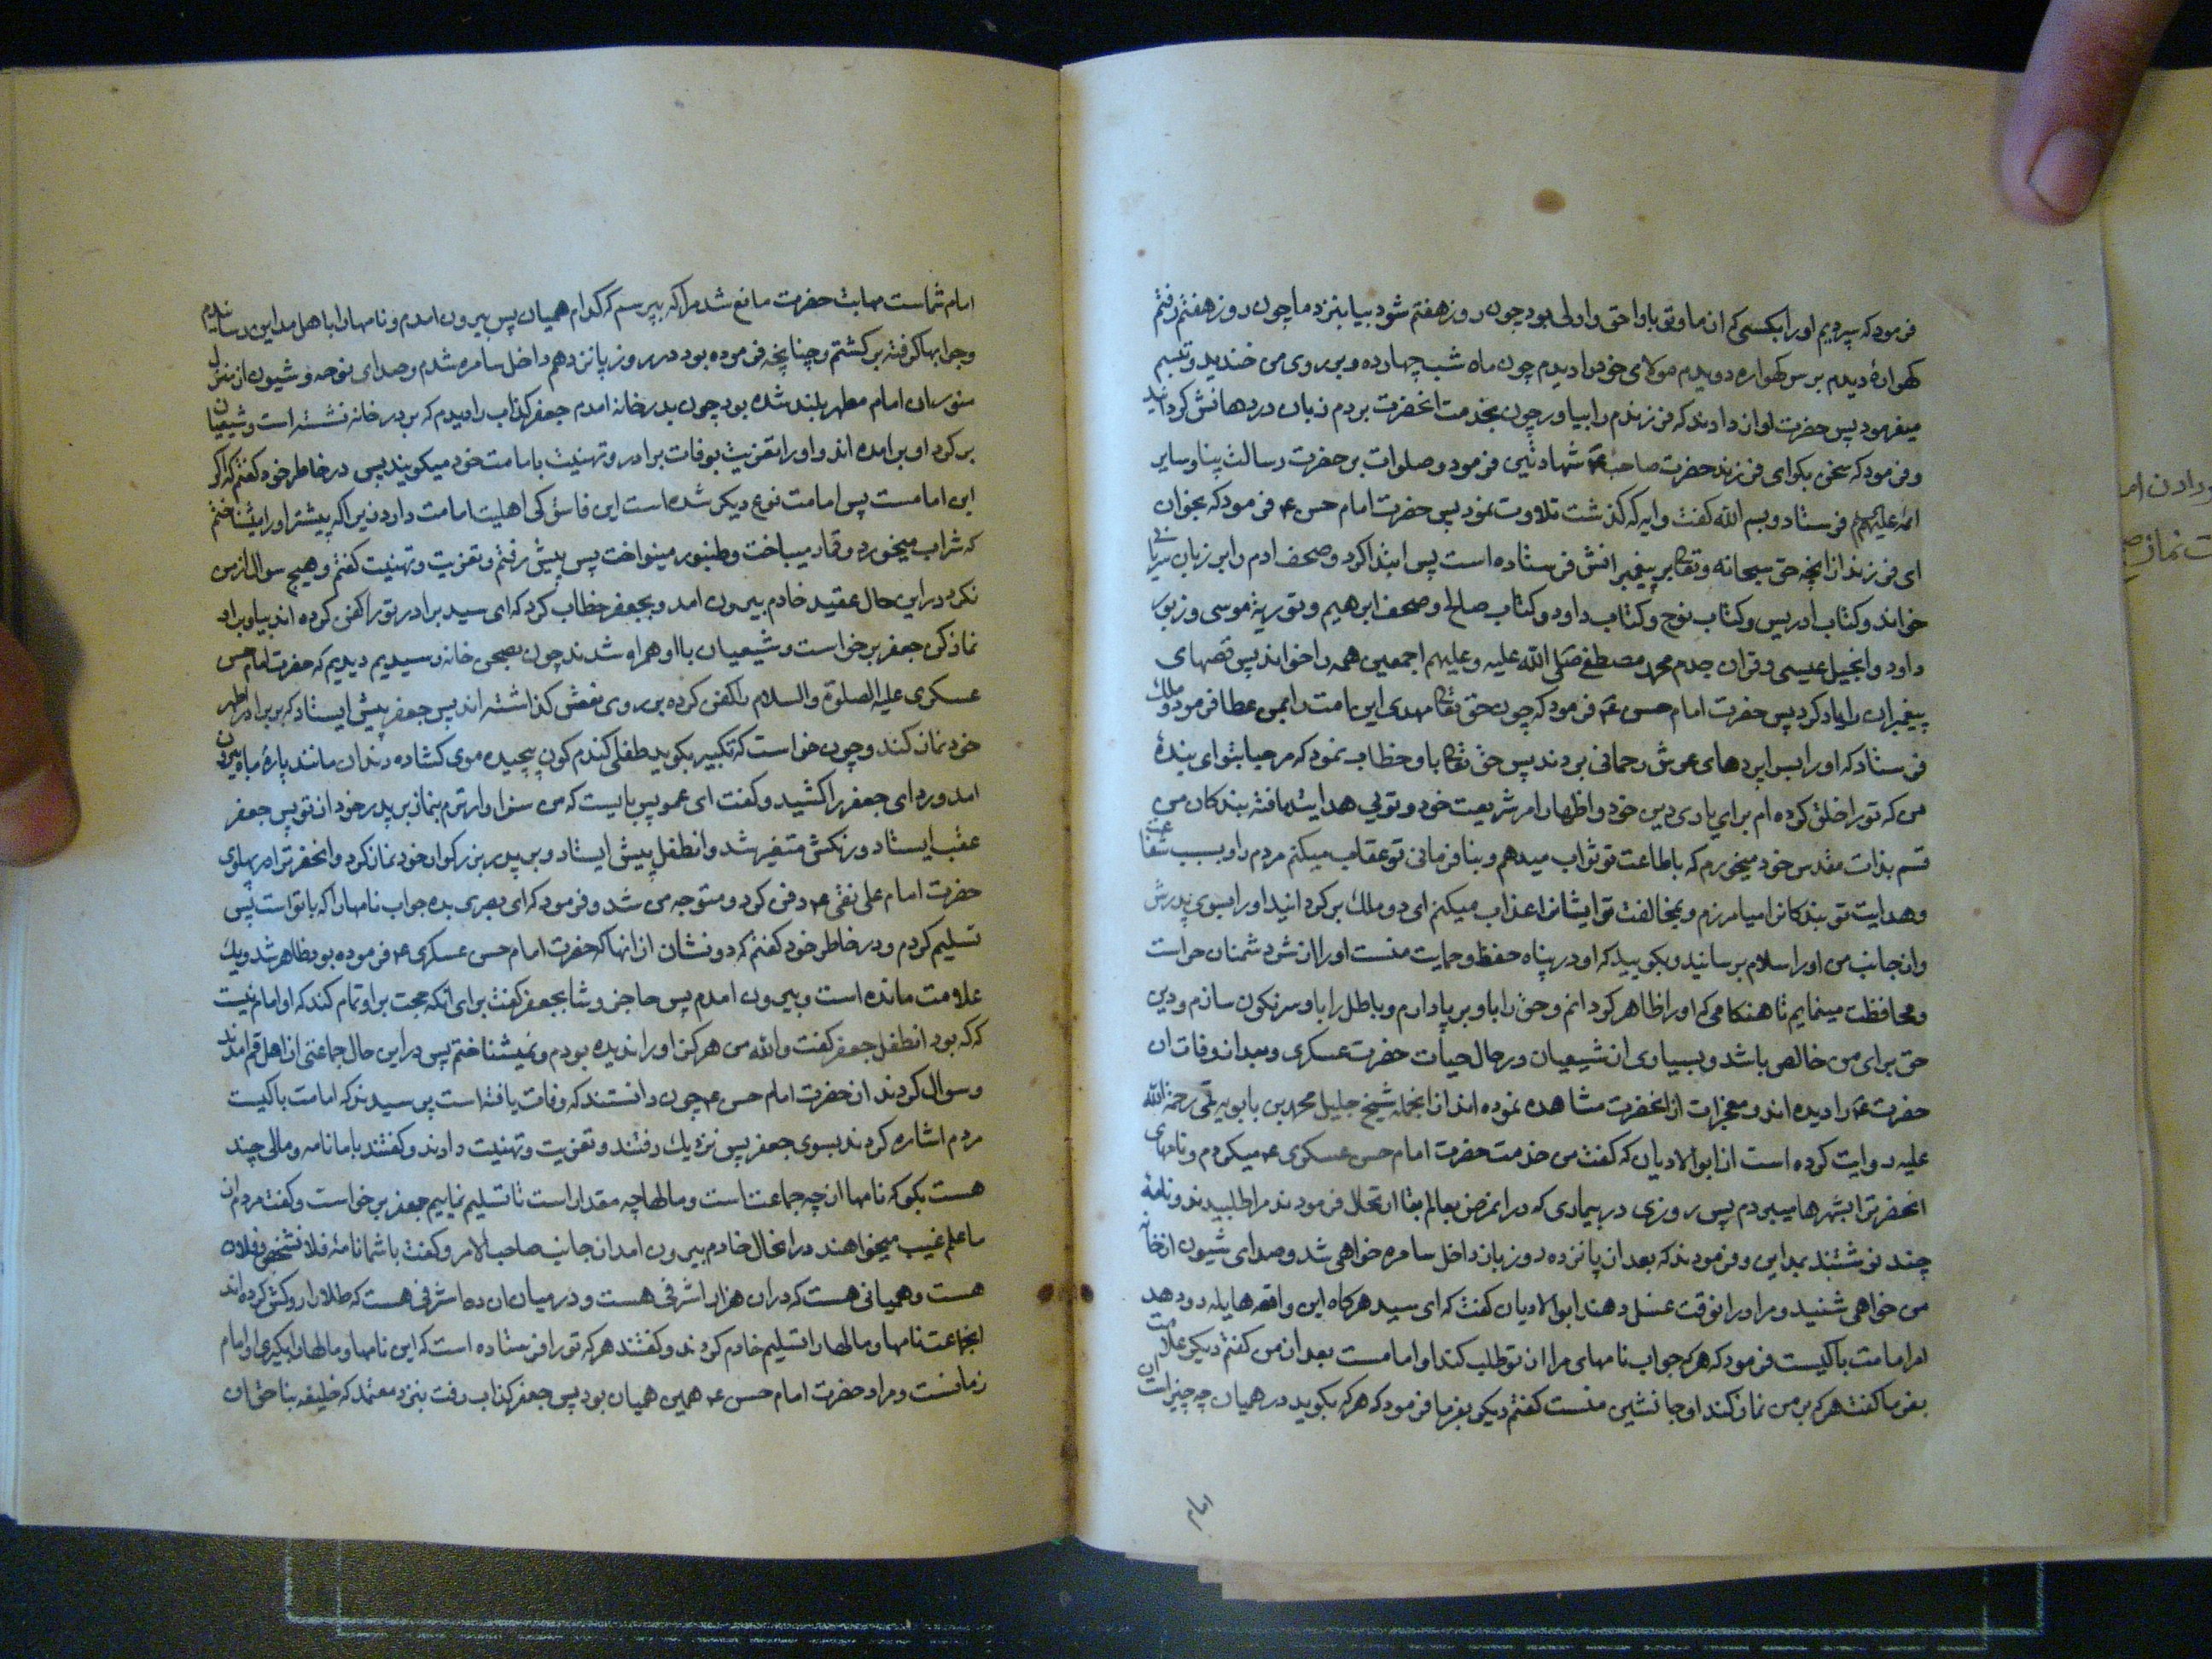 فرمود که سپردیم او را بکسی که از ما و تو باو احق و اولی بود چون روز هفتم شود بیا بنزد ما چون روز هفتم رفتم
کهوارهٔ دیدم بر سر کهواره دویدم مولای خود را دیدم چون ماه شب چهارده و بر روی من خندید و تبسم
میفرمود پس حضرت اواز دادند که فرزندم را بیاور چون بخدمت انحضرت بردم زبان در دهانش کردانید
و فرمود که سخن بکو ای فرزند حضرت صاحب ع شهادتین فرمود و صلوات بر حضرت رسالت پناه و سایر
ائمه علیهم فرستاد و بسم الله کفت و ایه که کذشت تلاوت نمود پس حضرت امام حسن ع فرمود که بخوان
ای فرزند از انچه حق سبحانه و تعا بر پیغمبرانش فرستاده است پس ابتدا کرد و صحف ادم را بزبان سریانی
خواند و کتاب ادریس و کتاب نوح و کتاب داود و کتاب صالح و صحف ابرهیم و توریة موسی و زبور
داود و انجیل عیسی و قران جدم محمد مصطفی صلی الله علیه و علیهم اجمعین همه را خواند پس قصهای
پیغمبران را یاد کرد پس حضرت امام حسن ع فرمود که چون حق تعا مهدی این امت را بمن عطا فرمود دو ملک
فرستاد که او را بسراپردهای عرش رحمانی بردند پس حق تعا باو خطاب نمود که مرحبا بتو ای بندهٔ
من که تو را خلق کرده ام برای یاری دین خود و اظهار امر شریعت خود و توئی هدایت یافته بندکان من
قسم بذات مقدس خود میخورم که باطاعت تو ثواب میدهم و بنافرمانی تو عقاب میکنم مردم را و بسبب شفاعت
و هدایت تو بندکانرا میامرزم و بمخالفت تو ایشانرا عذاب میکنم ای دو ملک بر کردانید او را بسوی پدرش
و از جانب من او را سلام برسانید و بکویید که او در پناه حفظ و حمایت منست او را از شر دشمنان حراست
و محافظت مینمایم تا هنکامی که او را ظاهر کردانم و حق را باو بر پا دارم و باطل را باو سرنکون سازم و دین
حق برای من خالص باشد و بسیاری از شیعیان در حال حیات حضرت عسکری و بعد از وفات ان
حضرت ع را دیده اند و معجزات از انحضرت مشاهده نموده اند از انجمله شیخ جلیل محمد بن بابویه قمی رحمة الله
علیه روایت کرده است از ابوالادیان که کفت من خدمت حضرت امام حسن عسکری ع میکردم و نامهای
انحضرترا بشهرها میبردم پس روزی در بیماری که در انمرض بعالم بقا ارتحال فرمودند مرا طلبیدند و نامهٔ
چند نوشتند بمداین و فرمودند که بعد از پانزده روز باز داخل سامره خواهی شد و صدای شیون از خانه
من خواهی شنید و مرا در انوقت غسل دهند ابوالادیان کفت که ای سید هرکاه این واقعه هایله رو دهد
امر امامت با کیست فرمود که هر که جواب نامهای مرا از تو طلب کند او امامست بعد از من کفتم دیکر علامت
بفرما کفت هر که بر من نماز کند او جانشین منست کفتم دیکر بفرما فرمود که هر که بکوید در همیان چه چیز است ان
امام
امام شماست مهابت حضرت مانع شد مرا که بپرسم که کدام همیان پس بیرون امدم و نامها را باهل مداین رسانیدم
و جوابها کرفته بر کشتم و چنانچه فرموده بود در روز پانزدهم داخل سامره شدم و صدای نوحه و شیون از منزل
منور ان امام مطهر بلند شده بود چون بدر خانه امدم جعفر کذاب را دیدم که بر در خانه نشسته است و شیعیان
بر کرد او بر امده اند و او را تعزیت بوفات برادر و تهنیت بامامت خود میکویند پس در خاطر خود کفتم که اکر
این امامست پس امامت نوع دیکر شده است این فاسق کی اهلیت امامت دارد زیرا که پیشتر او را میشناختم
که شراب میخورد و قمار میباخت و طنبور مینواخت پس پیش رفتم و تعزیت و تهنیت کفتم و هیچ سوال از من
نکرد در این حال عقید خادم بیرون امد و بجعفر خطاب کرد که ای سید برادر تو را کفن کرده اند بیا و بر او
نماز کن جعفر برخواست و شیعیان با او همراه شدند چون بصحن خانه رسیدیم دیدیم که حضرت امام حسن
عسکری علیه الصلوة و السلام را کفن کرده بر روی نعش کذاشته اند پس جعفر پیش ایستاد که بر برادر اطهر
خود نماز کند و چون خواست که تکبیر بکوید طفلی کندم کون پیچیده موی کشاده دندان مانند پارهٔ ماه بیرون
امد و ردای جعفر را کشید و کفت ای عمو پس بایست که من سزاوارترم بنماز بر پدر خود از تو پس جعفر
عقب ایستاد و رنکش متغیر شد و انطفل پیش ایستاد و بر پدر بزرکوار خود نماز کرد و انحضرترا در پهلوی
حضرت امام علی نقی ع دفن کرد و متوجه من شد و فرمود که ای بصری بده جواب نامها را که با تو است پس
تسلیم کردم و در خاطر خود کفتم که دو نشان از انها که حضرت امام حسن عسکری ع فرموده بود ظاهر شد و یک
علامت مانده است و بیرون امدم پس حاجز وشا بجعفر کفت برای انکه حجت بر او تمام کند که او امام نیست
که که بود انطفل جعفر کفت والله من هرکز او را ندیده بودم و نمیشناختم پس در این حال جماعتی از اهل قم امدند
و سوال کردند از حضرت امام حسن ع چون دانستند که وفات یافته است پرسیدند که امامت با کیست
مردم اشاره کردند بسوی جعفر پس نزدیک رفتند و تعزیت و تهنیت دادند و کفتند با ما نامه و مالی چند
هست بکو که نامها از چه جماعتست و مالها چه مقدار است تا تسلیم نماییم جعفر برخواست و کفت مردم از
ما علم غیب میخواهند در انحال خادم بیرون امد از جانب صاحب الامر و کفت با شما نامهٔ فلانشخص و فلان
هست و همیانی هست که در ان هزار اشرفی هست و در میان ان ده اشرفی هست که طلا را روکش کرده اند
انجماعت نامها و مالها را تسلیم خادم کردند و کفتند هر که تو را فرستاده است که این نامها و مالها را بکیری او امام
زمانست و مراد حضرت امام حسن ع همین همیان بود پس جعفر کذاب رفت بنزد معتمد که خلیفه بناحق ان